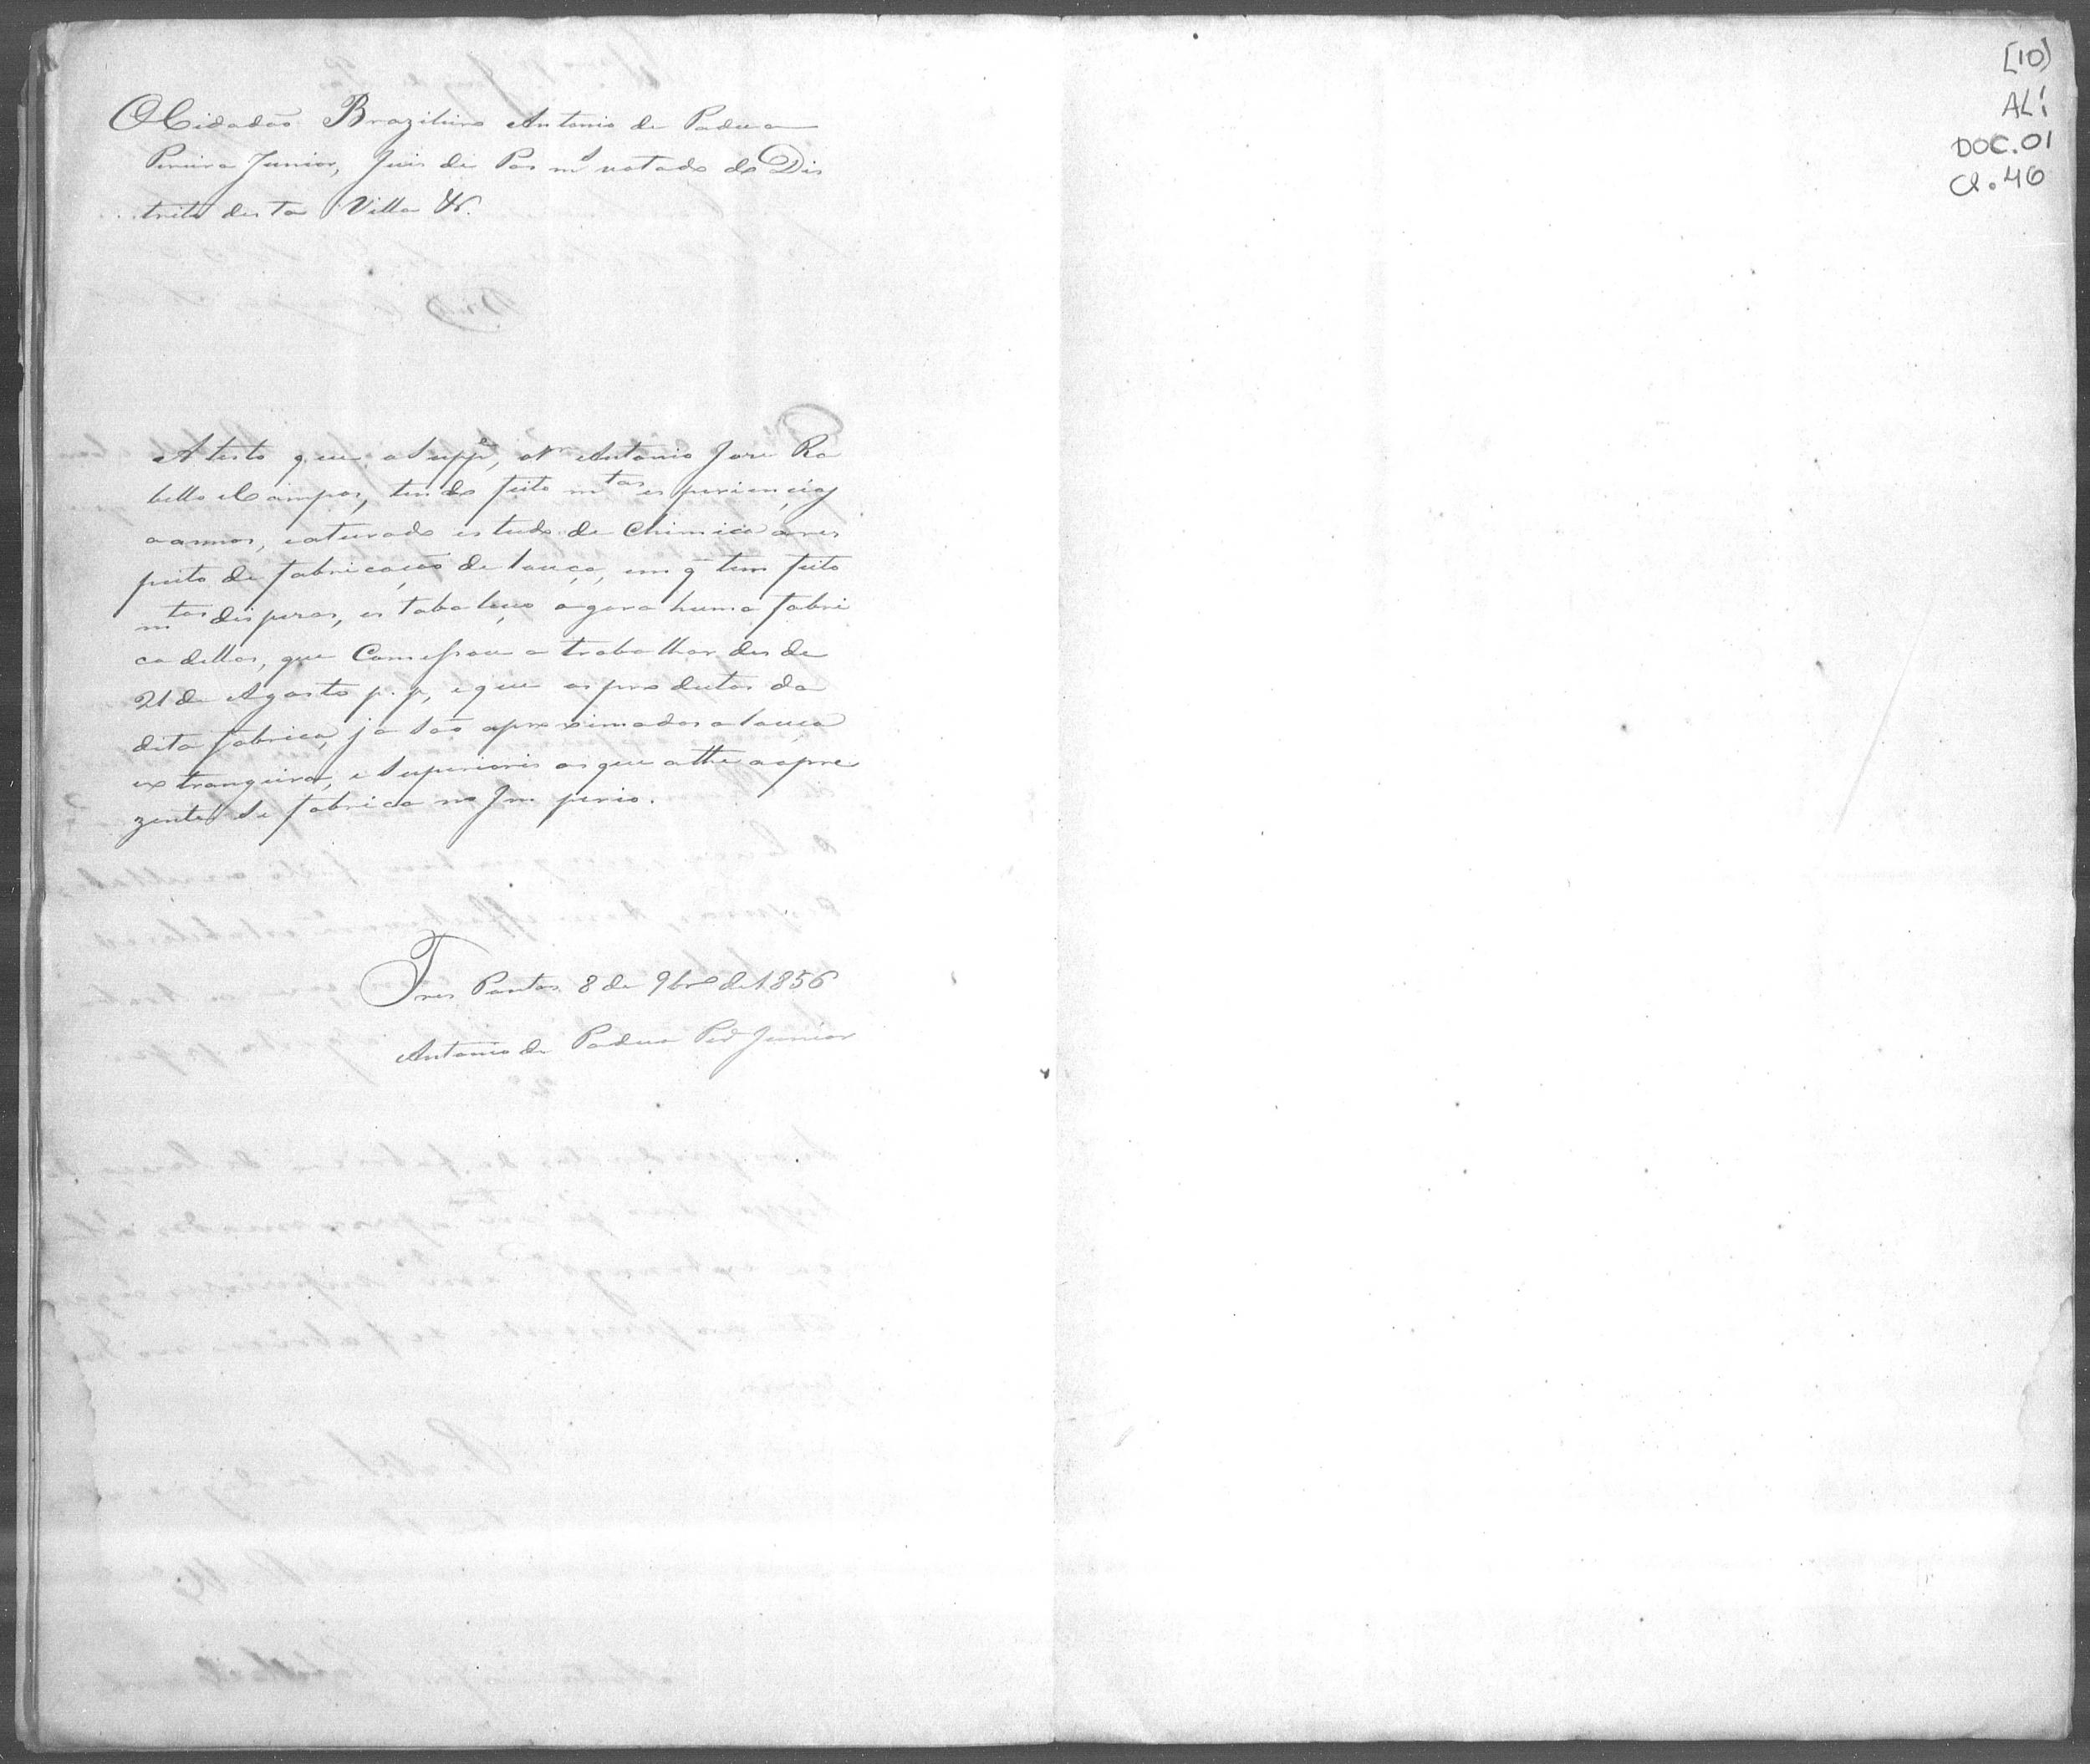 O Cidadão Brazileiro Antonio de Padua
Pereira Junior, Juis de Pas ms votado do Dis
trito desta Villa &c.
Atesto que o Suppe, o Sr Antonio Jose Ra
bello e Campos, tendo feito mtas esperiencias
a annos, e aturado estudo de Chimica a res
peito de fabricação de louça, em q tem feito
mtas despezas, estabaleceo agora huma fabri
ca dellas, que Comessou a trabalhar desde
21 de Agosto p. p, e que os produtos da
dita fabrica, ja são aproximados a louça
extrangeira, e Superioris os que athe ao pre
zente Se fabrica no Imperio.
Tres Pontas 8 de 9bro de 1856
Antonio de Padua Pera Junior
[10)
AL1
DOC.01
Cl.46